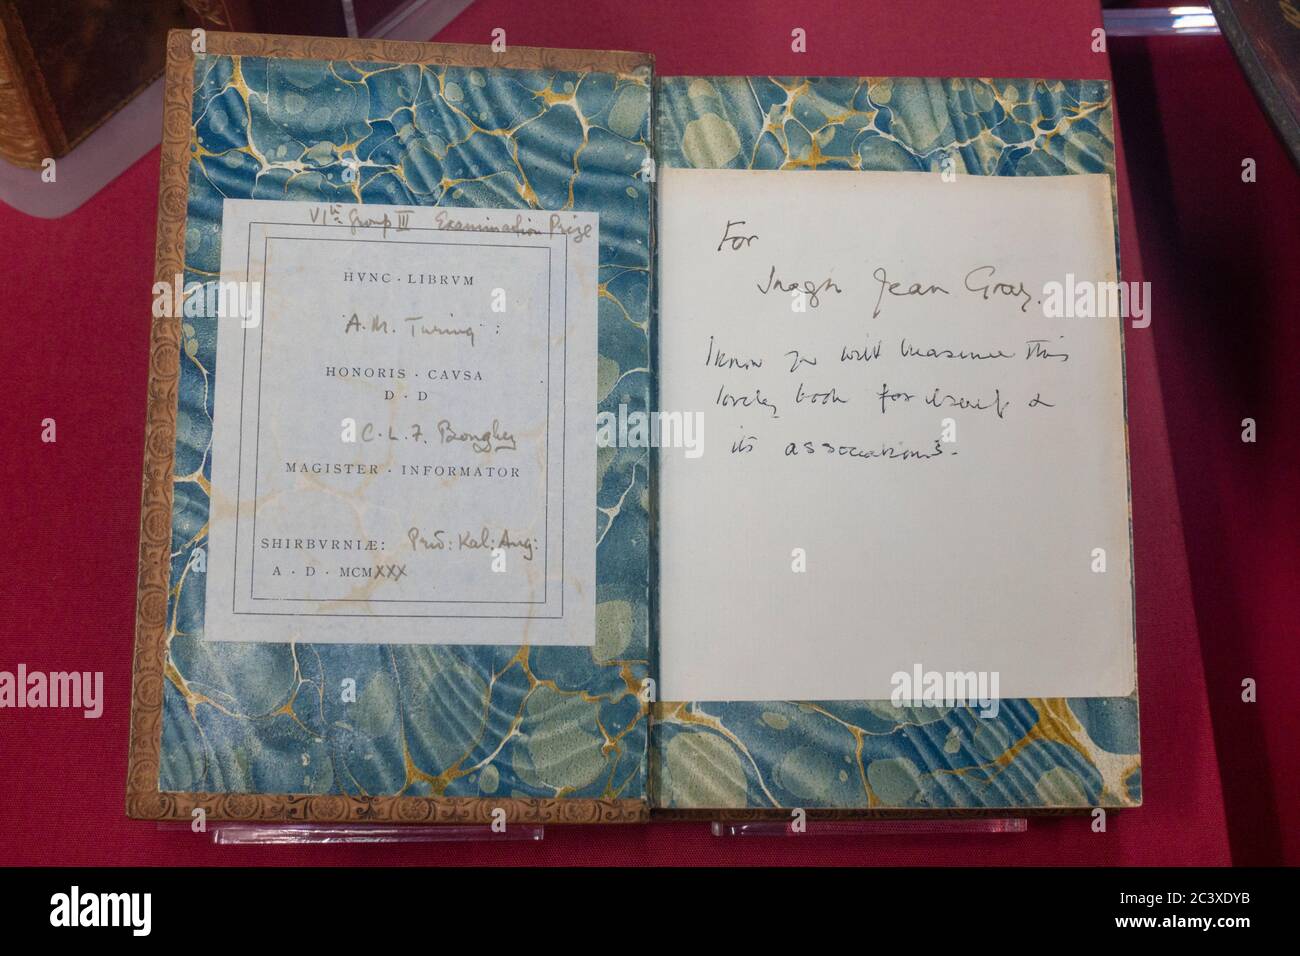 VIth Group III Examination Prize
HVNC · LIBRVM
A. M. Turing :
HONORIS · CAVSA
D · D
C. L. F. Boughey
MAGISTER · INFORMATOR
SHIRBVRNIÆ: Prid: Kal: Aug:
A · D · MCMXXX
For
Jean Gray.
I know you will treasure this
lovely book for itself &
its associations.
alamy
Image ID: 2C3XDYB
www.alamy.com